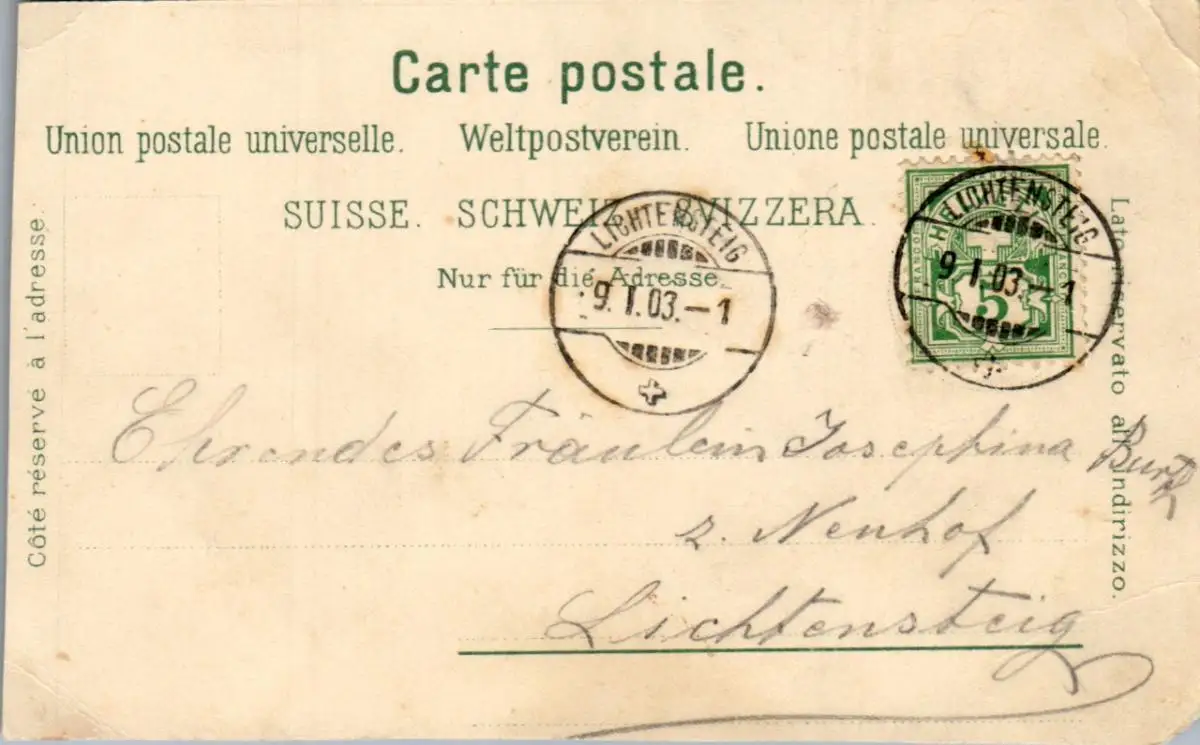 Carte postale.
Union postale universelle. Weltpostverein. Unione postale universale.
SUISSE. SCHWEIZ. SVIZZERA.
Nur für die Adresse.
Côté réservé à l'adresse.
Lato riservato all'indirizzo.
LICHTENSTEIG
9. I. 03. – 1
HELVETIA
FRANCO
5
LICHTENSTEIG
9. I. 03. – 1
Ehrendes Fräulein Josephina
z. Neuhof
Lichtensteig